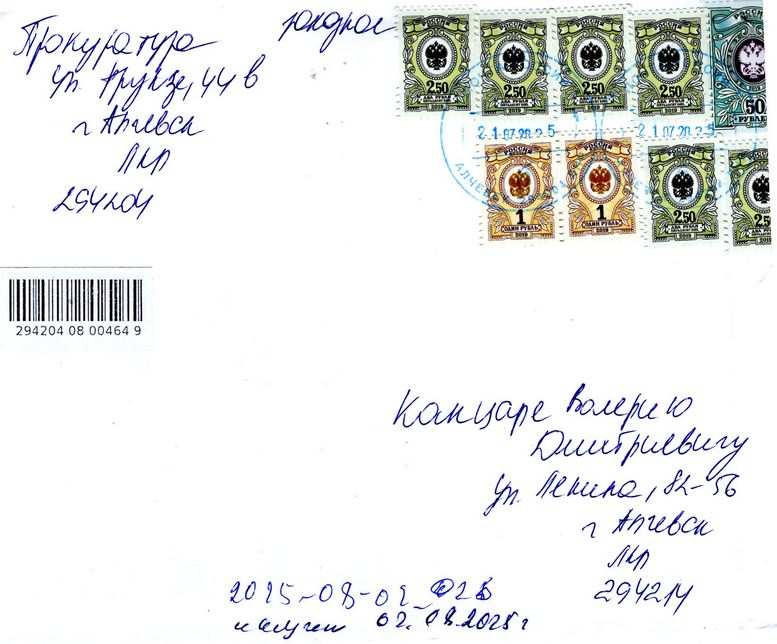 Прокуратура
заказное
ул. Фрунзе, 44 в
г Алчевск
ЛНР
294204
РОССИЯ
2.50
ДВА РУБЛЯ
2019
РОССИЯ
2.50
ДВА РУБЛЯ
2019
РОССИЯ
2.50
ДВА РУБЛЯ
2019
РОССИЯ
2.50
ДВА РУБЛЯ
2019
РОССИЯ
2019
50
РУБЛЕЙ
21.07.2025
21.07.2025
АЛЧЕВС
РОССИЯ
1
ОДИН РУБЛЬ
2019
РОССИЯ
1
ОДИН РУБЛЬ
2019
РОССИЯ
2.50
ДВА РУБЛЯ
2019
2.50
294204 08 00464 9
Канцаре Валерию
Дмитриевичу
ул. Ленина, 82-56
г Алчевск
ЛНР
294214
2025-08-02
получен 02.08.2025 г